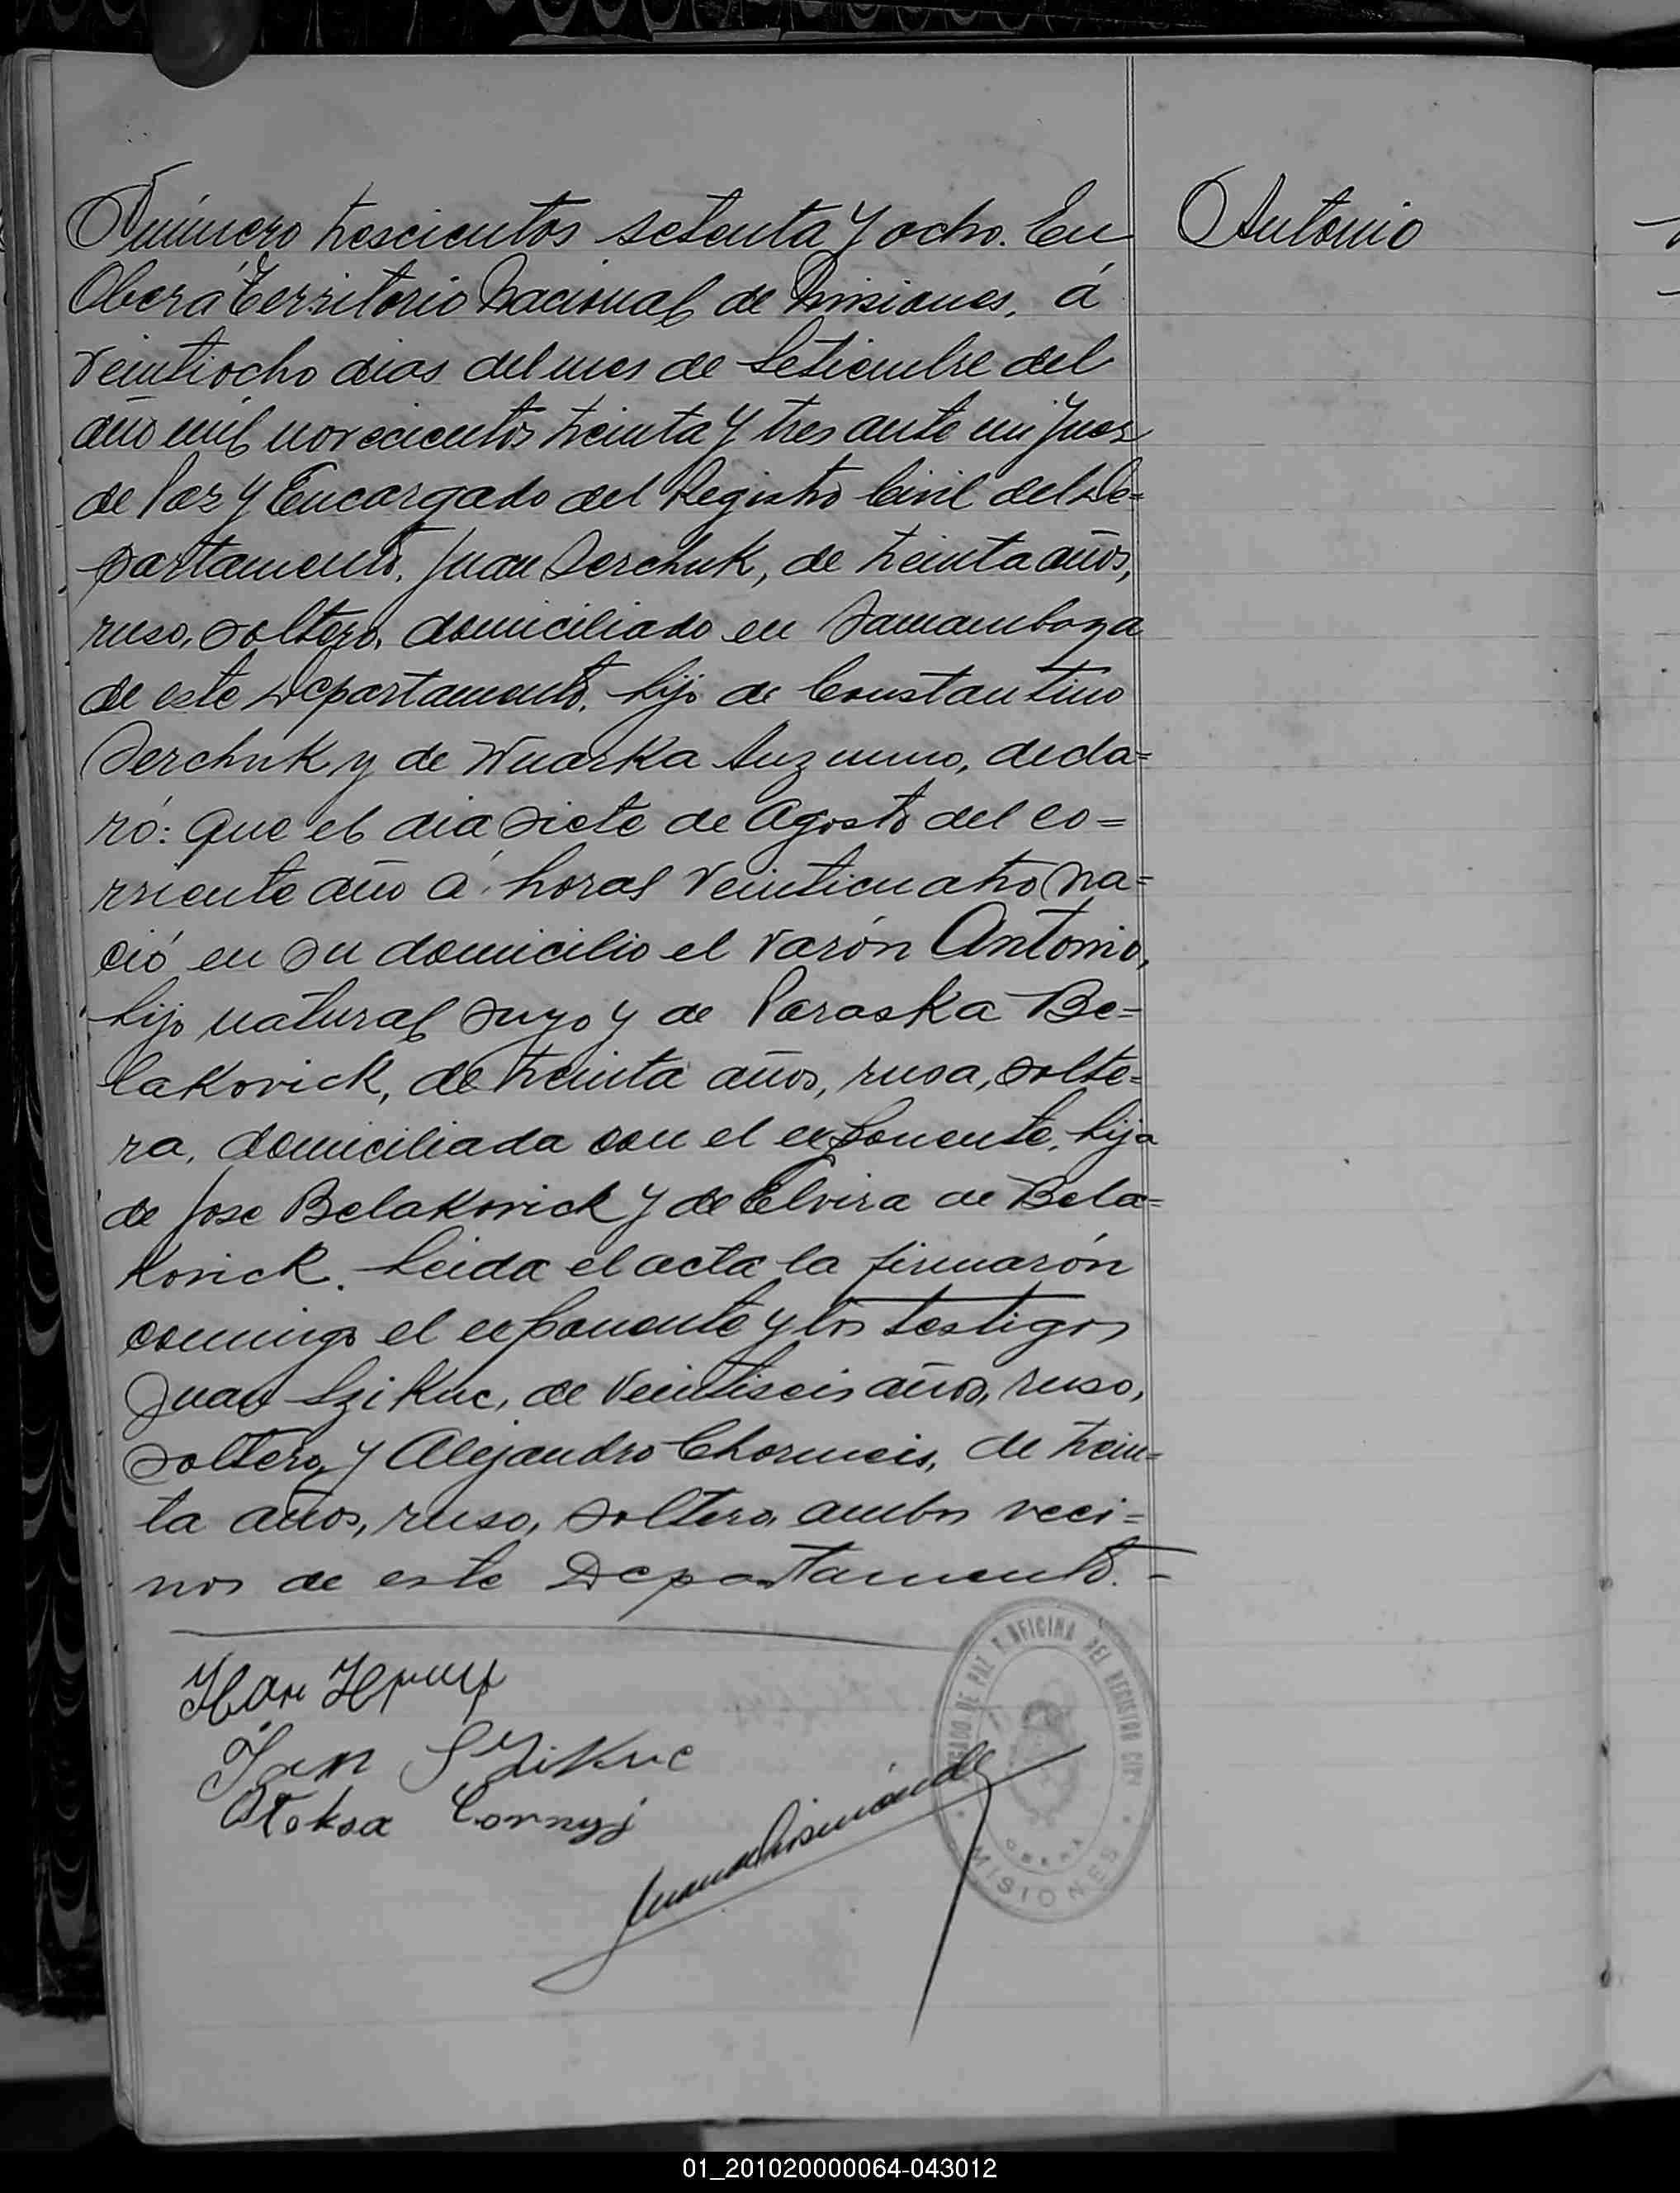 Número trescientos setenta y ocho. En
Antonio
Oberá Territorio Nacional de Misiones, á
veintiocho dias del mes de Setiembre del
año mil novecientos treinta y tres ante mi Juez
de Paz y Encargado del Registro Civil del De=
partamento, Juan Serchuk, de treinta años,
ruso, soltero, domiciliado en Samambaya
de este Departamento, hijo de Constantino
Serchuk y de Wuarka, decla=
ró: Que el dia siete de Agosto del co=
rriente año á horas veinticuatro na=
ció en su domicilio el varón Antonio,
hijo natural suyo y de Paraska Be=
lakovick, de treinta años, rusa, solte=
ra, domiciliada con el exponente, hija
de Jose Belakovick y de Elvira de Bela=
kovick. Leida el acta la firmarón
conmigo el exponente y los testigos
Juan Szikuc, de veintiseis años, ruso,
soltero, y Alejandro Chorneis, de trein=
ta años, ruso, soltero, ambos veci=
nos de este Departamento. =
JUZGADO DE PAZ Y OFICINA DEL REGISTRO CIVIL
OBERA
MISIONES
Jan Szikuc
Oleksa Cornyj
01_201020000064-043012